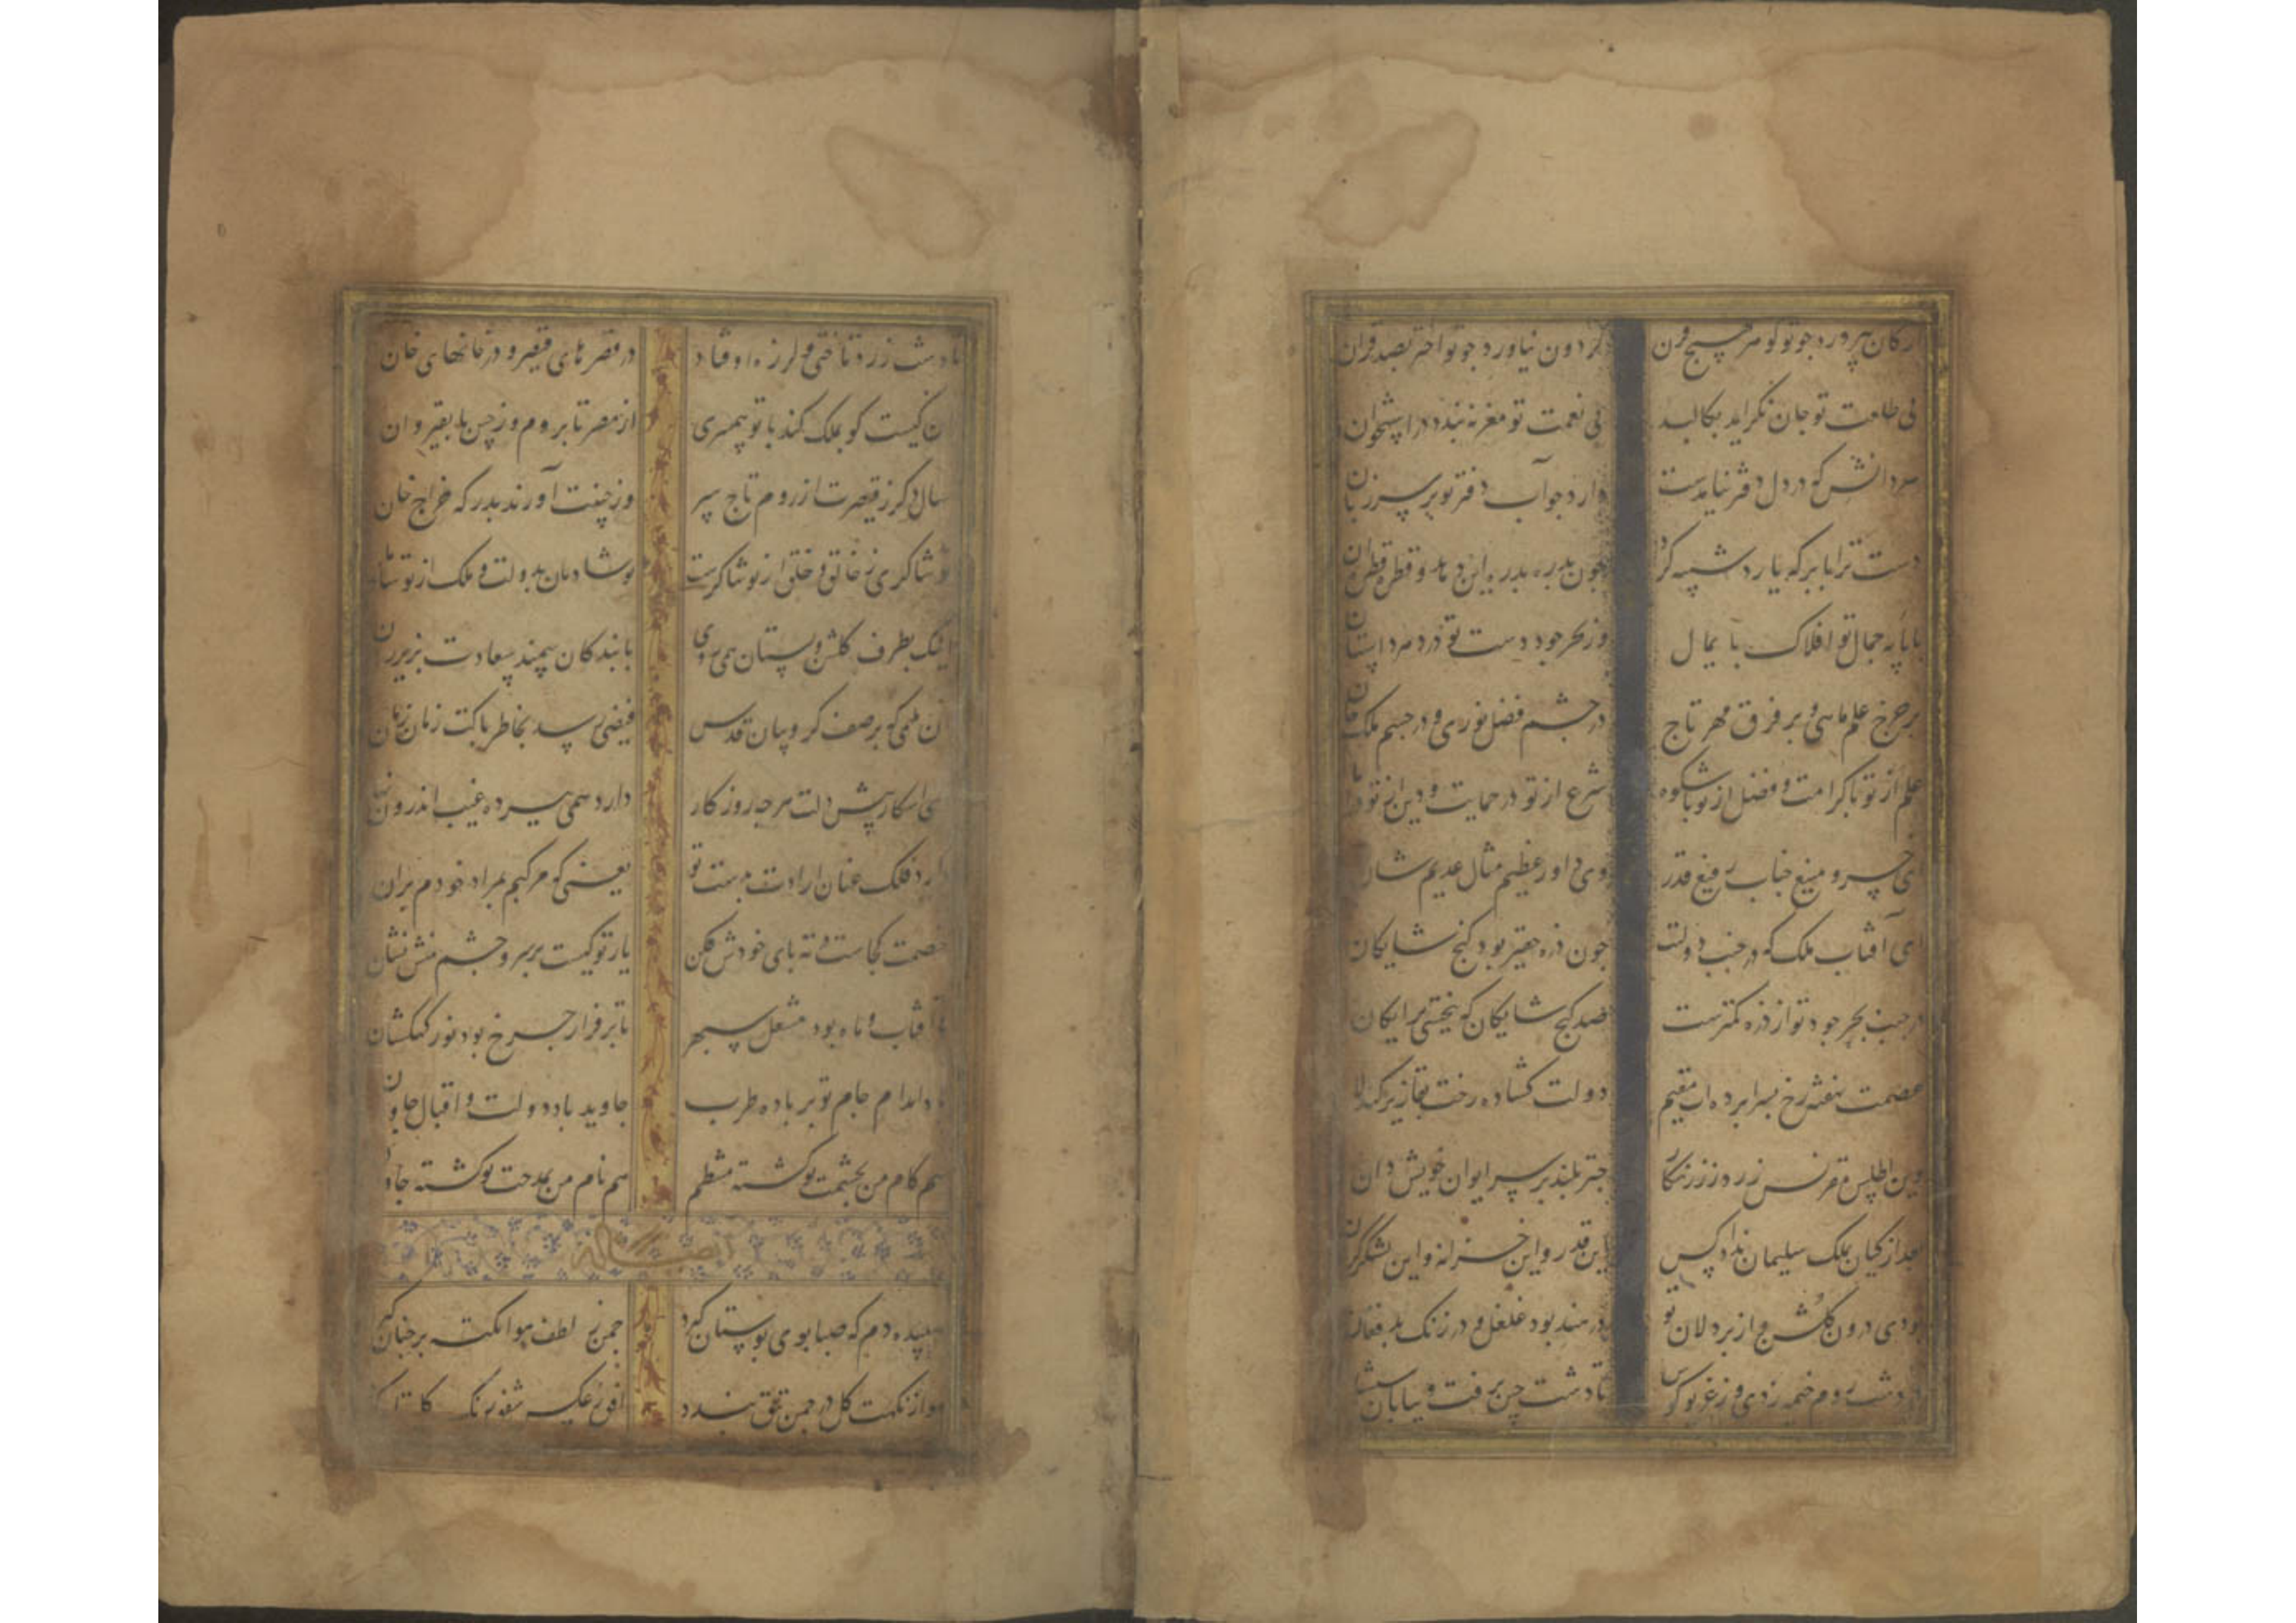 ارکان نپرورد چو تو گوهر بهیچ قرن
گردون نیاورد چو تو اختر بصد قران
بی طلعت تو جان نگراید بکالبد
بی نعمت تو مغز نبندد در استخوان
دانش که در دل دفتر نیامدست
دارد جو آب دفتر تو بر سر زبان
دست ترا بابر که یارد شبیه کرد
چون بدره بدره این دهد و قطره قطره آن
با پایه جمال تو افلاک پایمال
وز بحر جود دست تو در دهر داستان
بر چرخ علم ماهی و بر فرق مهر تاج
در چشم فضل نوری و در جسم ملک جان
علم از تو با کرامت و فضل از تو با شکوه
شرع از تو در حمایت و دین از تو در امان
ای خسرو منیع جناب رفیع قدر
وی داور عظیم مثال عدیم شان
ای آفتاب ملک که در جنب دولتت
جون ذره حقیر بود کنج شایکان
در جنب بحر جود تو از ذره کمترست
صد کنج شایکان که ببخشی برایکان
عصمت نهفته رخ بسرابرده ات مقیم
دولت کشاده رخت بقا زیر کندلان
وین اطلس مقرنس زردوز زرنکار
جتر بلند بر سر ایوان خویش دان
بعد از کیان بملک سلیمان نداد کس
این قدر و این خزانه و این لشکر کران
بودی درون گلشن و از بردلان تو
در هند بود غلغل و در زنک بد فغان
در دشت روم خیمه زدی و زغریو کوس
تا دشت چین برفت و بیابان سیستان
تا دشت زرد تاختی و لرزه اوفتاد
در قصرهای قیصر و در خانهای خان
آن کیست کو بملک کند با تو همسری
از مصر تا بروم و ز چین تا بقیروان
سال دکر ز قیصرت از روم تاج سر
وز چینت آورند بدرکه خراج خان
تو شاکری ز خالق و خلق از تو شاکرست
تو شادمان بدولت و ملک از تو شادمان
اینک بطرف کلشن و بستان همی روی
با بندکان سمند سعادت بزیر ران
فیضی رسد بخاطر پاکت زمان زمان
ای آشکار پیش دلت هر جه روزکار
دارد همی بپرده غیب اندرون نهان
دارد فلک عنان ارادت بدست تو
یعنی که هر کیم بمراد خودم بران
خصمت کجاست در ته بای خودش فکن
یار تو کیست بر سر و جشم منش نشان
تا آفتاب و ماه بود مشعل سپهر
تا بر فراز جرخ بود نور کهکشان
بادا مدام جام تو بر باده طرب
جاوید باد دولت و اقبال جاودان
هم کام من بخدمت تو کشته منتظم
هم نام من بمدحت تو کشته جاودان
سپیده دم که صبا بوی بوستان گیرد
جمن ز لطف هوا نکته بر جنان گیرد
هوا ز نکهت کل در جمن تتق بندد
افق ز عکس شفق رنک